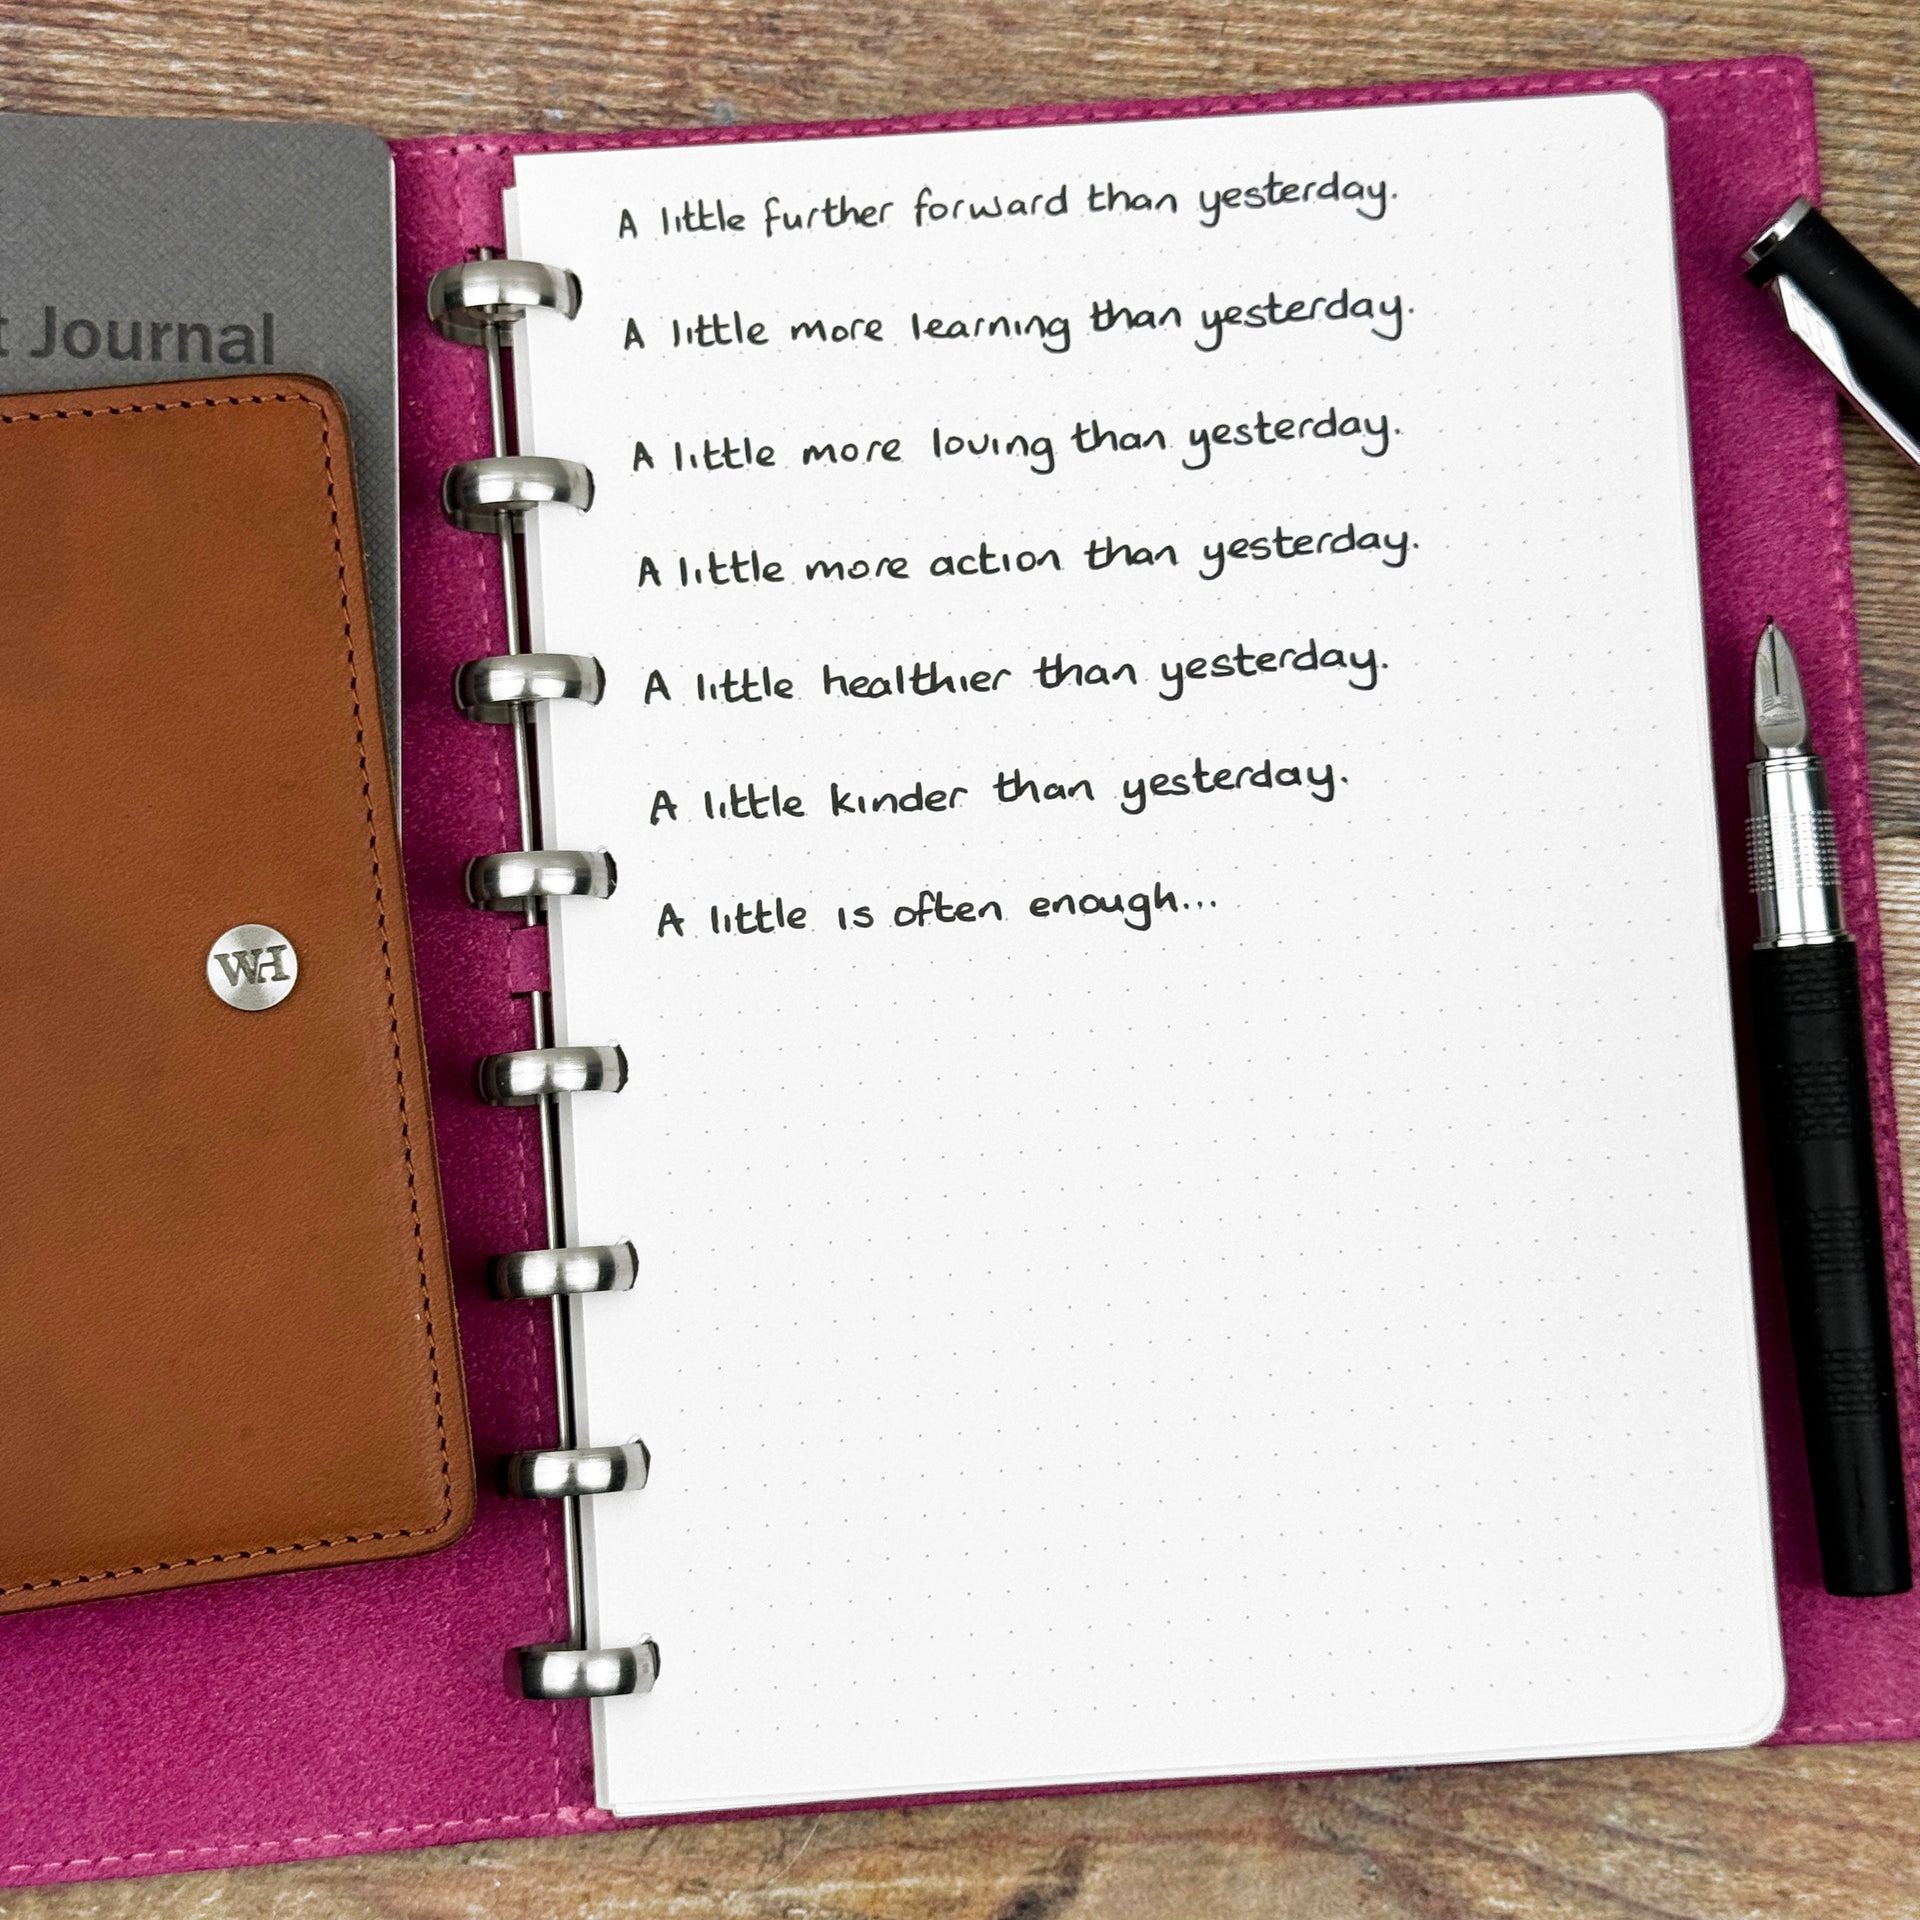 t Journal
WH
A little further forward than yesterday.
A little more learning than yesterday.
A little more loving than yesterday.
A little more action than yesterday.
A little healthier than yesterday.
A little kinder than yesterday.
A little is often enough...